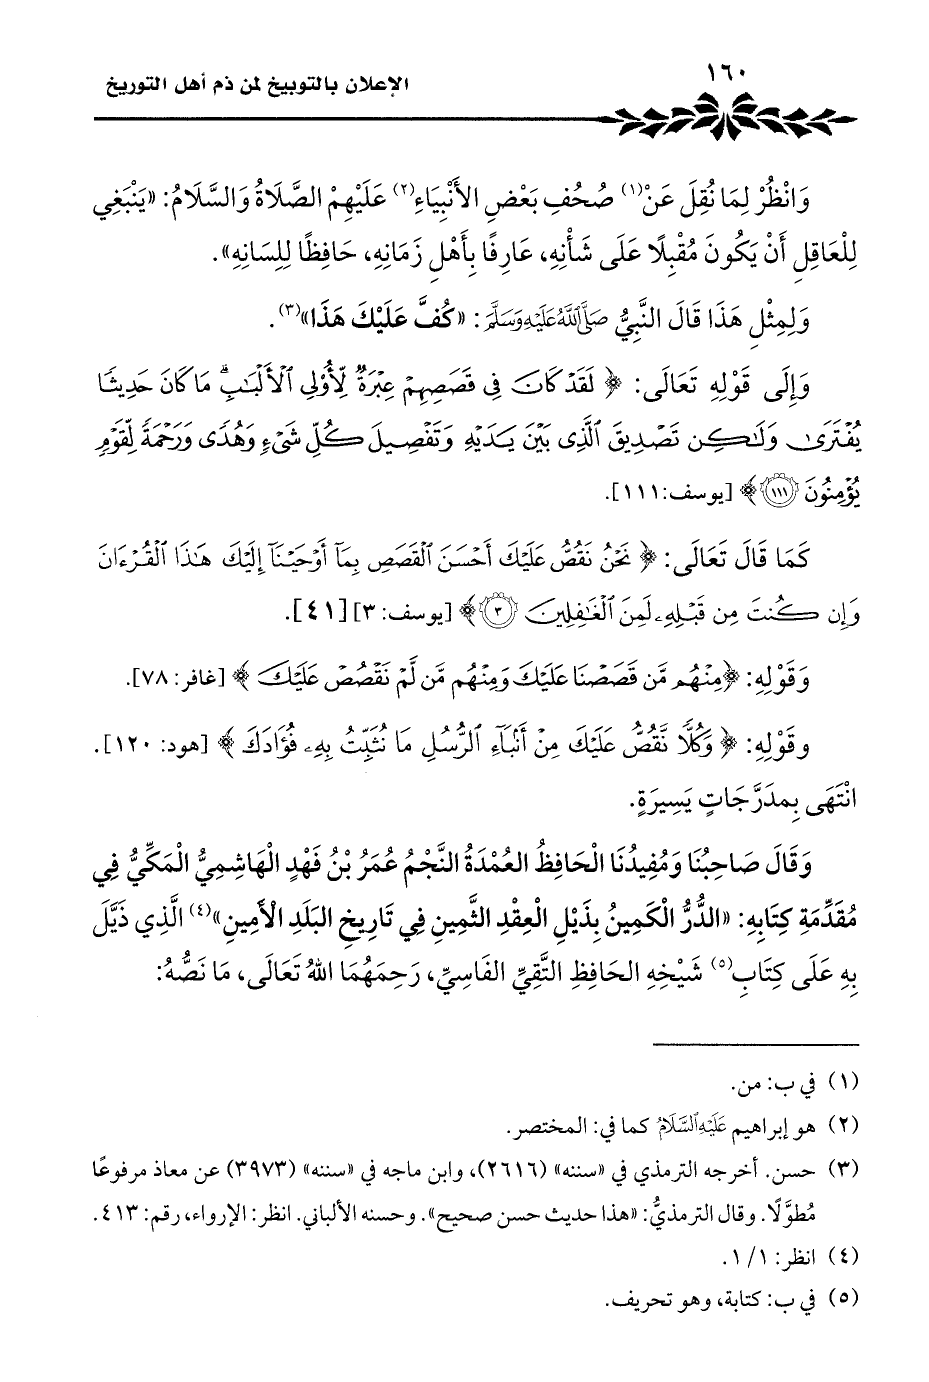 ١٦٠
الإعلان بالتوبيخ لمن ذم أهل التوريخ
وَانْظُرْ لِمَا نُقِلَ عَنْ(١) صُحُفِ بَعْضِ الأَنْبِيَاءِ(٢) عَلَيْهِمْ الصَّلَاةُ وَالسَّلَامُ: «يَنْبَغِي
لِلْعَاقِلِ أَنْ يَكُونَ مُقْبِلًا عَلَى شَأْنِهِ، عَارِفًا بِأَهْلِ زَمَانِهِ، حَافِظًا لِلِسَانِهِ».
وَلِمِثْلِ هَذَا قَالَ النَّبِيُّ صَلَّى اللَّهُ عَلَيْهِ وَسَلَّمَ: «كُفَّ عَلَيْكَ هَذَا»(٣).
وَإِلَى قَوْلِهِ تَعَالَى: ﴿ لَقَدْ كَانَ فِي قَصَصِهِمْ عِبْرَةٌ لِّأُوْلِي ٱلْأَلْبَٰبِۗ مَا كَانَ حَدِيثًا
يُفْتَرَىٰ وَلَٰكِن تَصْدِيقَ ٱلَّذِي بَيْنَ يَدَيْهِ وَتَفْصِيلَ كُلِّ شَيْءٍ وَهُدًى وَرَحْمَةً لِّقَوْمٍ
يُؤْمِنُونَ ١١١ ﴾ [يوسف: ١١١].
كَمَا قَالَ تَعَالَى: ﴿ نَحْنُ نَقُصُّ عَلَيْكَ أَحْسَنَ ٱلْقَصَصِ بِمَآ أَوْحَيْنَآ إِلَيْكَ هَٰذَا ٱلْقُرْءَانَ
وَإِن كُنتَ مِن قَبْلِهِۦ لَمِنَ ٱلْغَٰفِلِينَ ٣ ﴾ [يوسف: ٣] [٤١].
وَقَوْلِهِ: ﴿مِنْهُم مَّن قَصَصْنَا عَلَيْكَ وَمِنْهُم مَّن لَّمْ نَقْصُصْ عَلَيْكَ ﴾ [غافر: ٧٨].
وقَوْلِهِ: ﴿ وَكُلًّا نَّقُصُّ عَلَيْكَ مِنْ أَنۢبَآءِ ٱلرُّسُلِ مَا نُثَبِّتُ بِهِۦ فُؤَادَكَ ﴾ [هود: ١٢٠].
انْتَهَى بِمدَرَّجَاتٍ يَسِيرَةٍ.
وَقَالَ صَاحِبُنَا وَمُفِيدُنَا الْحَافِظُ العُمْدَةُ النَّجْمُ عُمَرُ بْنُ فَهْدٍ الْهَاشِمِيُّ الْمَكِّيُّ فِي
مُقَدِّمَةِ كِتَابِهِ: «الدُّرُّ الْكَمِينُ بِذَيْلِ الْعِقْدِ الثَّمِينِ فِي تَارِيخِ البَلَدِ الأَمِينِ»(٤) الَّذِي ذَيَّلَ
بِهِ عَلَى كِتَابِ(٥) شَيْخِهِ الحَافِظِ التَّقِيِّ الفَاسِيِّ، رَحِمَهُمَا اللهُ تَعَالَى، مَا نَصُّهُ:
(١) في ب: من.
(٢) هو إبراهيم عَلَيْهِ السَّلَامُ كما في: المختصر.
(٣) حسن. أخرجه الترمذي في «سننه» (٢٦١٦)، وابن ماجه في «سننه» (٣٩٧٣) عن معاذ مرفوعًا
مُطوَّلًا. وقال الترمذيُّ: «هذا حديث حسن صحيح». وحسنه الألباني. انظر: الإرواء، رقم: ٤١٣.
(٤) انظر: ١/ ١.
(٥) في ب: كتابة، وهو تحريف.